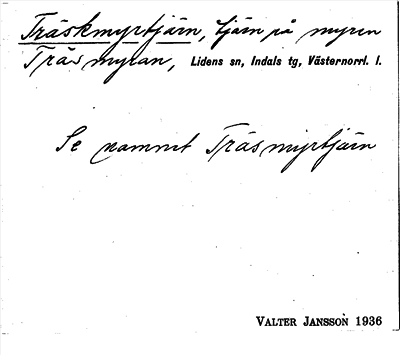 Träskmyrtjärn, tjärn på myren
Träsmyran, Lidens sn, Indals tg, Västernorrl. l.
Se namnet Träsmyrtjärn
VALTER JANSSON 1936